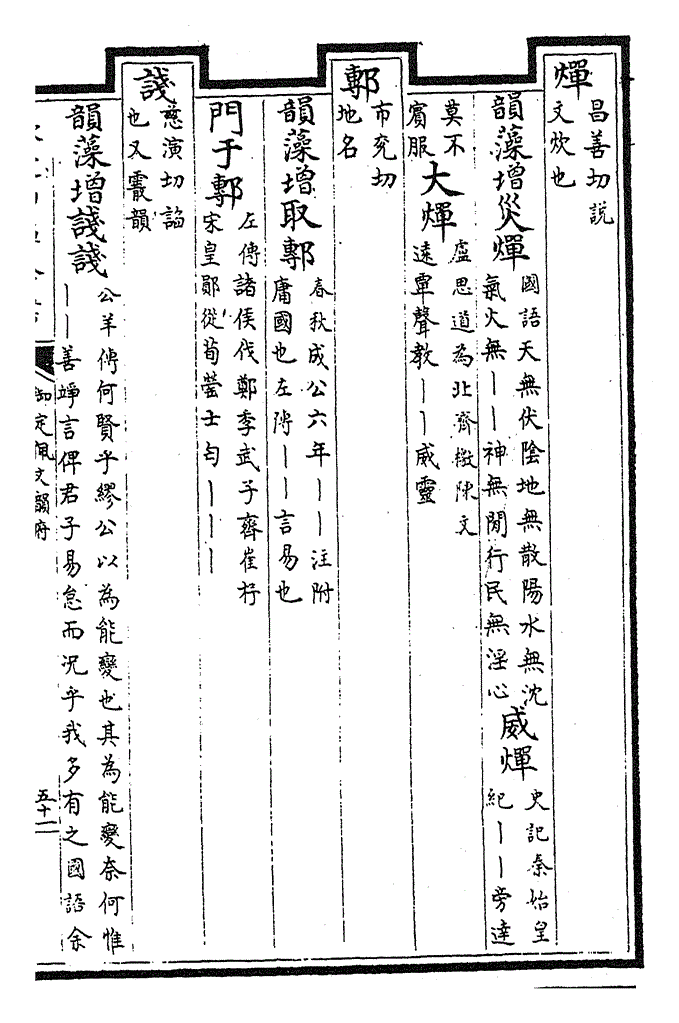 燀昌善切說文炊也
韻藻增災燀國語天無伏陰地無散陽水無沈氣火無丨丨神無閒行民無淫心威燀史記秦始皇紀丨丨旁達
莫不賓服大燀盧思道為北齊檄陳文遠覃聲教丨丨威靈
鄟市兖切地名
韻藻增取鄟春秋成公六年丨丨注附庸國也左傳丨丨言易也
門于鄟左傳諸侯伐鄭季武子齊崔杼宋皇鄖從荀罃士匄丨丨丨
諓慈演切諂也又霰韻
韻藻增諓諓公羊傳何賢乎繆公以為能變也其為能變奈何惟丨丨善竫言俾君子易怠而況乎我多有之國語余
御定佩文韻府
五十一